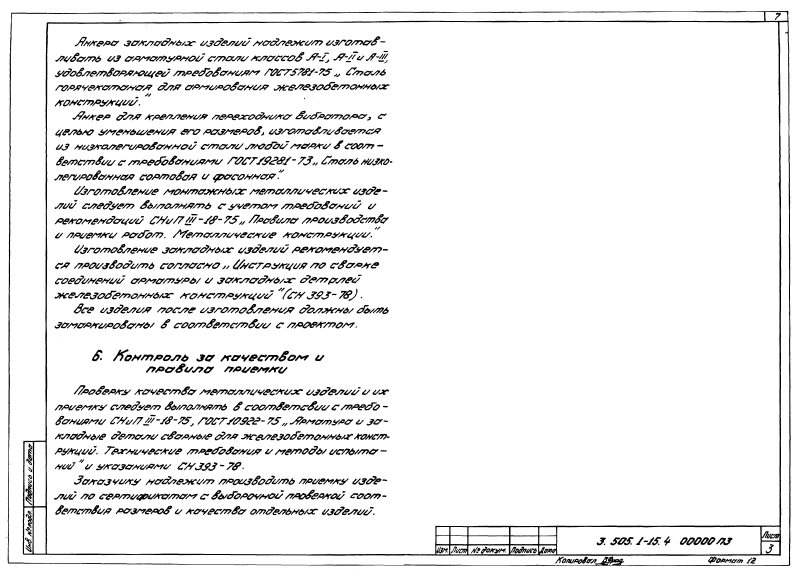 7
Анкера закладных изделий надлежит изготав-
ливать из арматурной стали классов А-I, А-II и А-III,
удовлетворяющей требованиям ГОСТ 5781-75 „Сталь
горячекатаная для армирования железобетонных
конструкций."
Анкер для крепления переходника вибратора, с
целью уменьшения его размеров, изготавливается
из низколегированной стали любой марки в соот-
ветствии с требованиями ГОСТ 19281-73 „Сталь низко-
легированная сортовая и фасонная."
Изготовление монтажных металлических изде-
лий следует выполнять с учетом требований и
рекомендаций СНиП III-18-75 „Правила производства
и приемки работ. Металлические конструкции."
Изготовление закладных изделий рекомендует-
ся производить согласно „Инструкция по сварке
соединений арматуры и закладных деталей
железобетонных конструкций" (СН 393-78).
Все изделия после изготовления должны быть
замаркированы в соответствии с проектом.
6. Контроль за качеством и
правила приемки
Проверку качества металлических изделий и их
приемку следует выполнять в соответсвии с требо-
ваниями СНиП III-18-75, ГОСТ 10922-75 „Арматура и за-
кладные детали сварные для железобетонных конст-
рукций. Технические требования и методы испыта-
ний" и указаниями СН 393-78.
Заказчику надлежит производить приемку изде-
лий по сертификатам с выборочной проверкой соот-
ветствия размеров и качества отдельных изделий.
Инв. № подл. Подпись и дата
Изм. Лист № докум. Подпись Дата
3.505.1-15.4 00000 ПЗ
Лист
3
Копировал
Формат 12